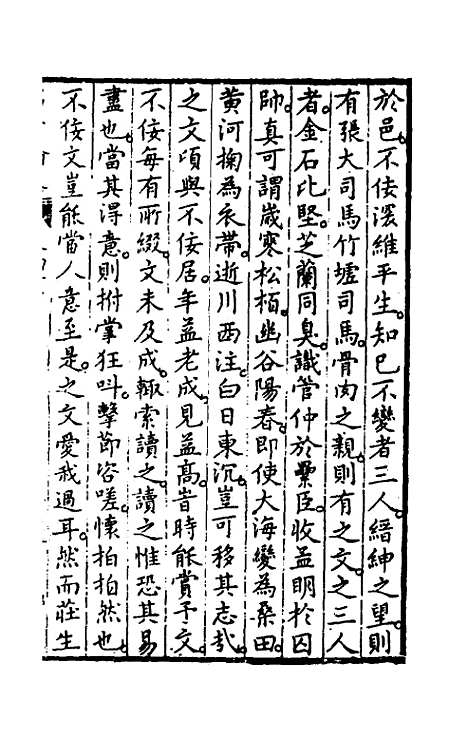 於邑不佞深維平生知巳不變者三人縉紳之望則
有張大司馬竹墟司馬骨肉之親則有之文之三人
者金石比堅芝蘭同臭識管仲於纍臣收孟明於囚
帥真可謂歲寒松栢幽谷陽春即使大海變為桑田
黄河掬為衣帶逝川西注白日東沉豈可移其志㢤
之文頃與不佞居年益老成見益高昔時能賞予文
不佞每有所綴文未及成輙索讀之讀之惟恐其易
盡也當其得意則拊掌狂呌擊節咨嗟懷拍拍然也
不佞文豈能當人意至是之文愛我過耳然而莊生